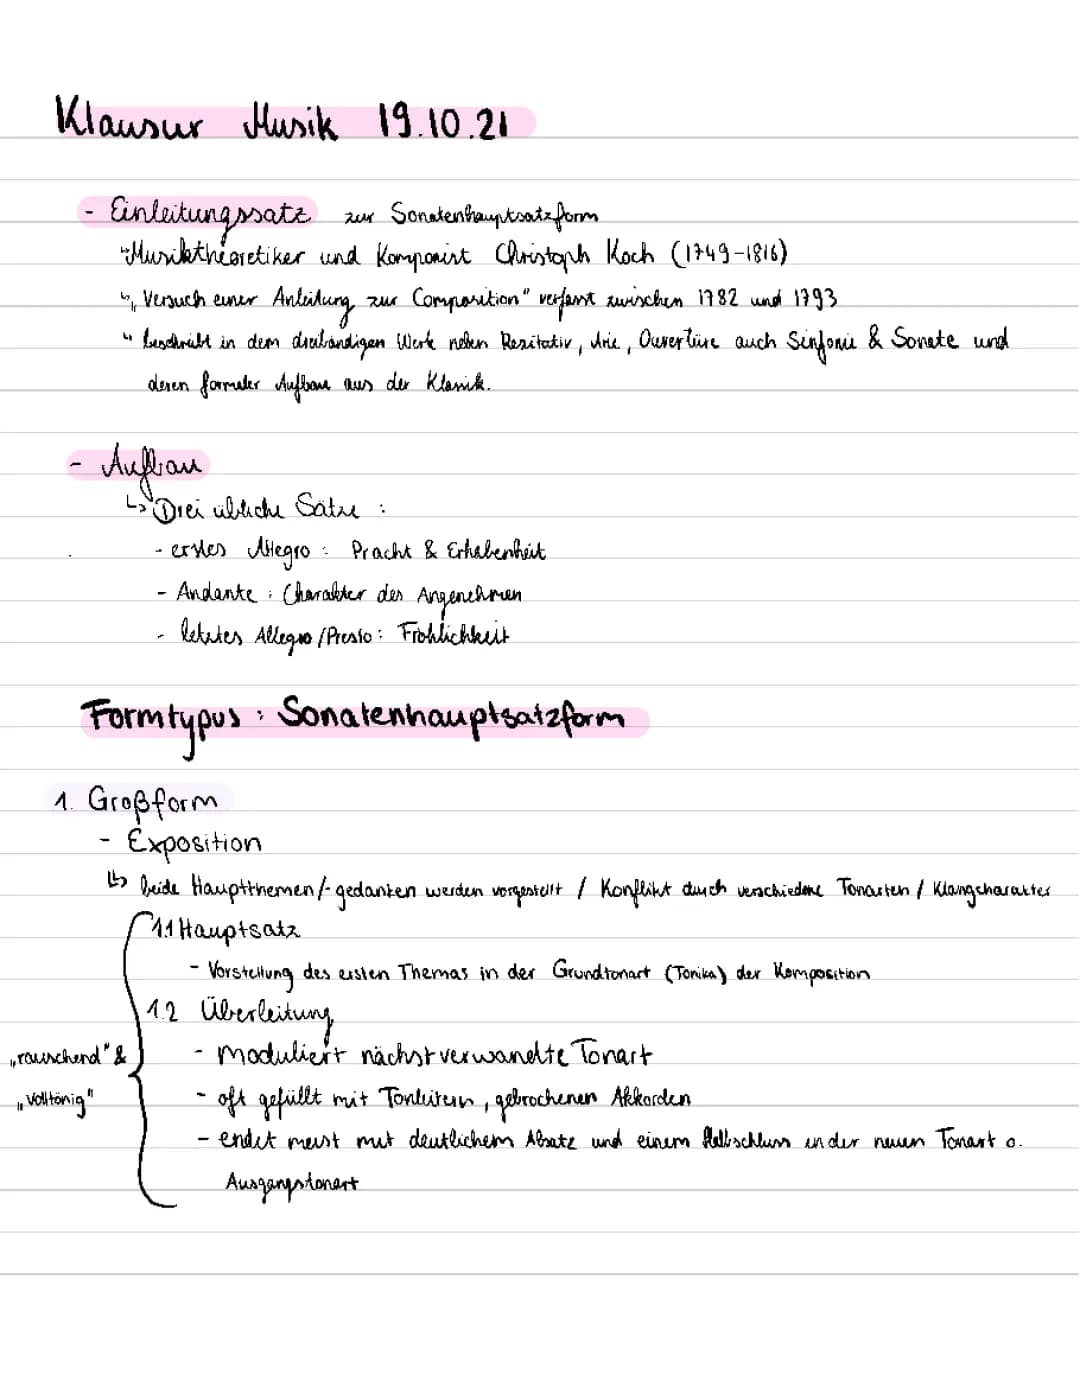 Klausur Musik 19.10.21
- Einleitungssatz zur Sonatenhauptsatzform
↳ Musiktheoretiker und Komponist Christoph Koch (1749-1816)
↳ „Versuch einer Anleitung zur Composition" verfasst zwischen 1782 und 1793
↳ beschreibt in dem dreibändigen Werk neben Rezitativ, Arie, Ouvertüre auch Sinfonie & Sonate und
deren formaler Aufbau aus der Klassik.
- Aufbau
↳ Drei übliche Sätze :
- erstes Allegro : Pracht & Erhabenheit
- Andante : Charakter des Angenehmen
- letztes Allegro /Presto : Fröhlichkeit
Formtypus : Sonatenhauptsatzform
1. Großform
- Exposition
↳ beide Hauptthemen/-gedanken werden vorgestellt / Konflikt durch verschiedene Tonarten / Klangcharakter
1.1 Hauptsatz
- Vorstellung des ersten Themas in der Grundtonart (Tonika) der Komposition
1.2 Überleitung
„rauschend" & - moduliert nächstverwandte Tonart
„volltönig" - oft gefüllt mit Tonleitern, gebrochenen Akkorden
- endet meist mit deutlichem Absatz und einem Halbschluss in der neuen Tonart o.
Ausgangstonart